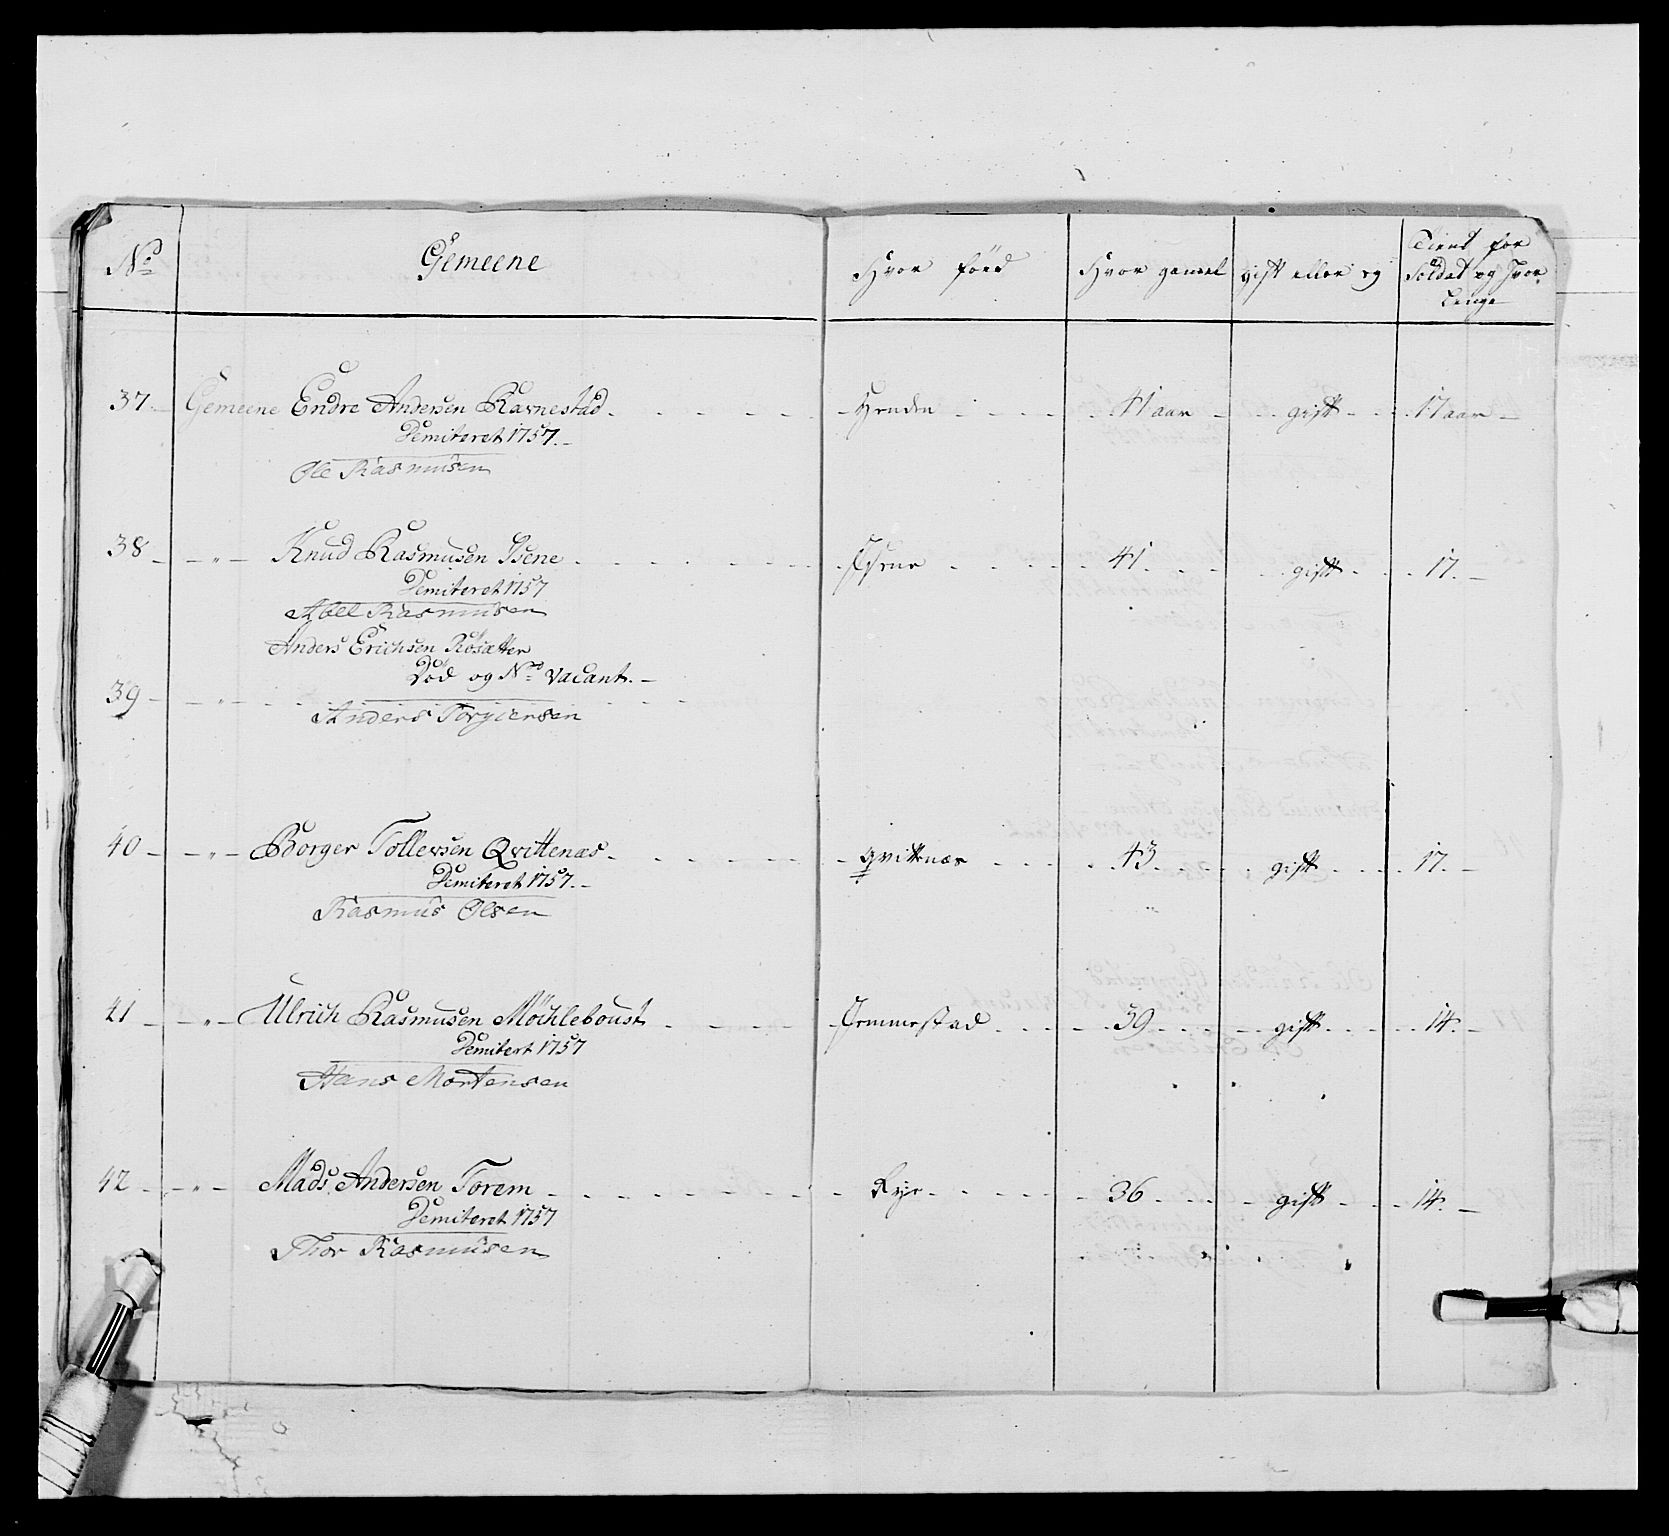 No Gemeene Hvor föed Hvor gamel gift eller ey Tient for Soldat og hvor Lenge
37 Gemeene Endre Andersen Ravnestad 41 aar gift 17 aar
Demiteret 1757
Ole Rasmusen
38 " Knud Rasmusen Isene Isene 41 gift 17
Demiteret 1757
Abel Rasmusen
Anders Erichsen Rosætter
Död og No Vacant
39 "
Anders Torgiersen
40 " Borger Tollevsen Qvittenæs Qvittnæs 43 gift 17
Demiteret 1757
Rasmus Olsen
41 " Ulrich Rasmusen Möchleboust 39 gift 14
Demitert 1757
Hans Mortensen
42 " Mads Andersen Torem Rye 36 gift 14
Demiteret 1757
Thor Rasmusen